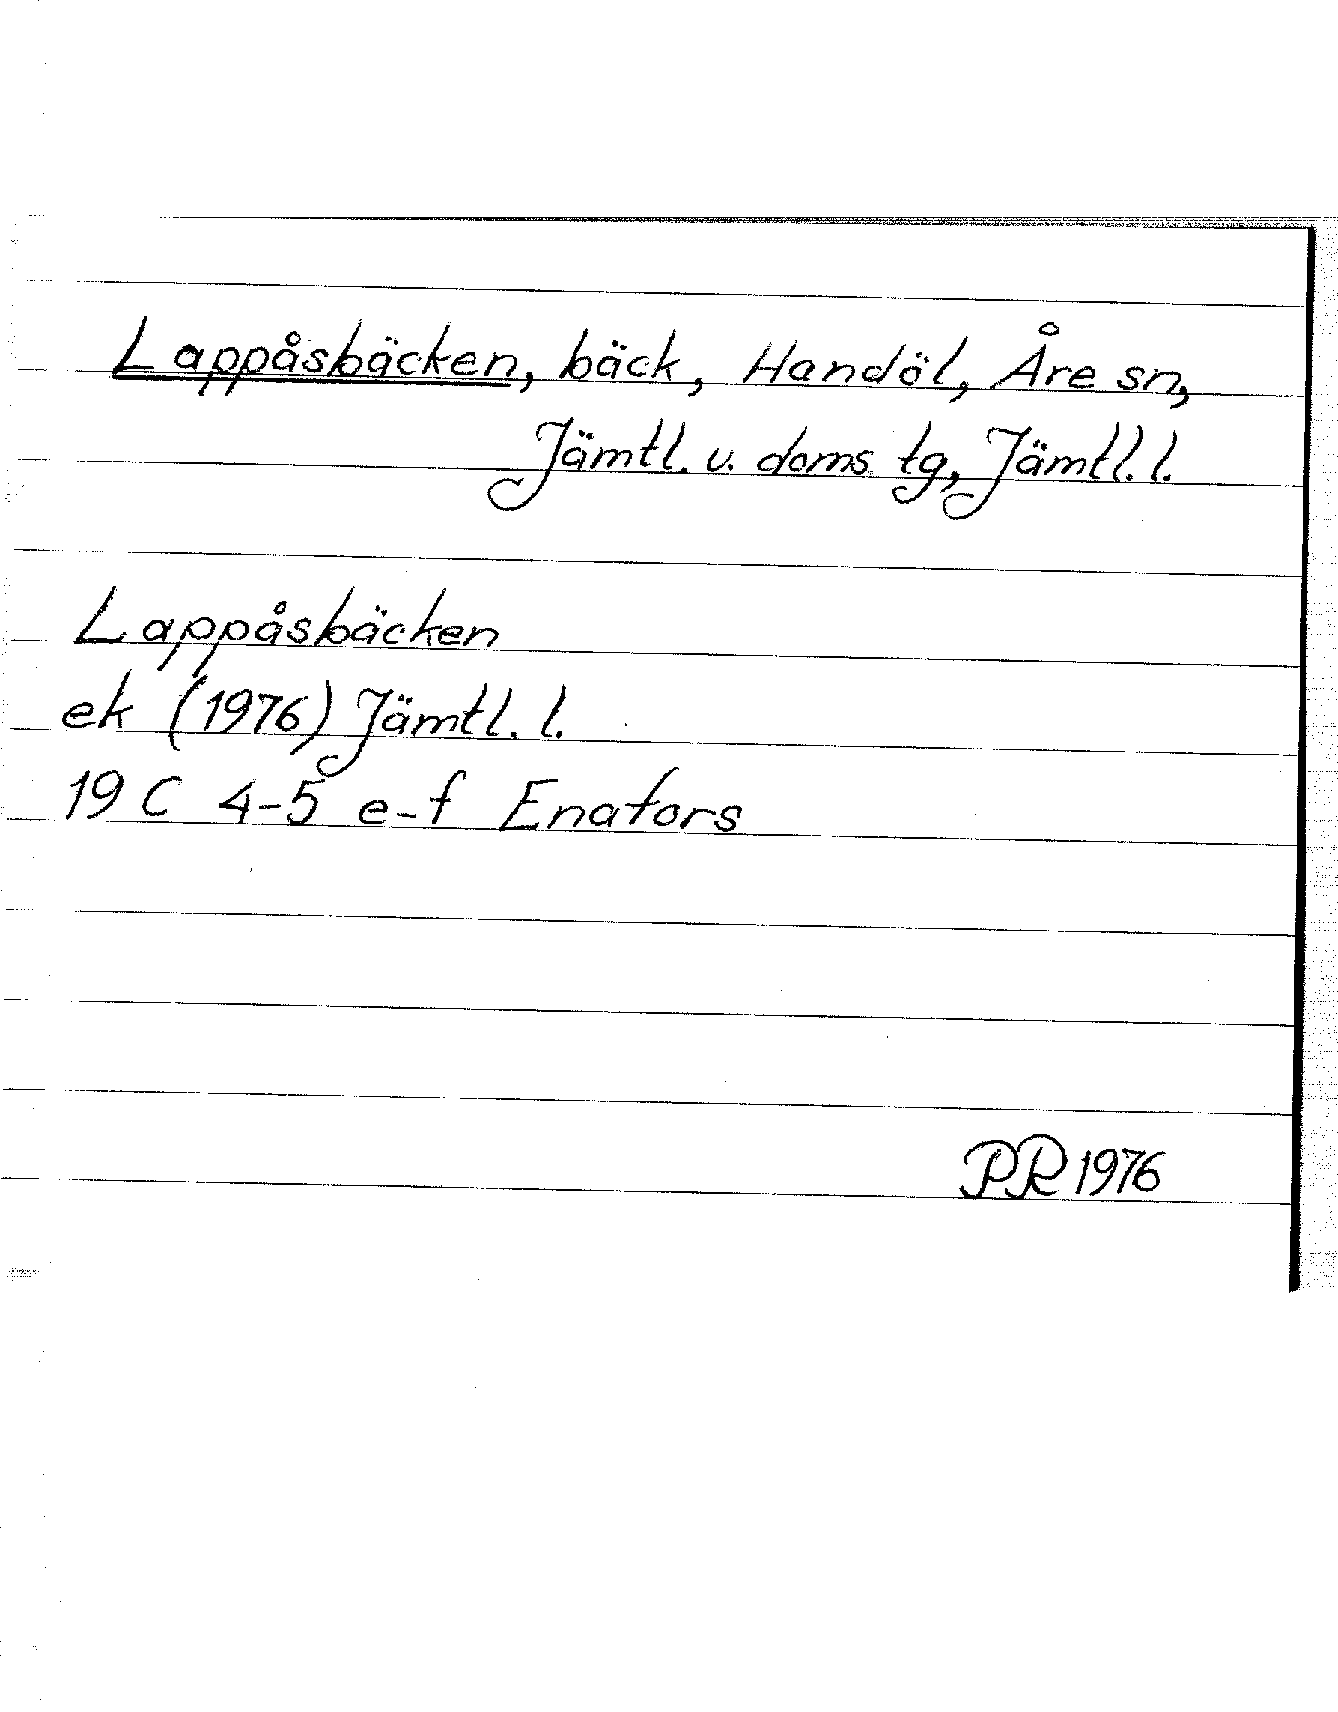 Lappåsbäcken, bäck, Handöl, Åre sn,
Jämtl. v. doms. tg, Jämtl. l.
Lappåsbäcken
ek (1976) Jämtl. l.
19 C 4-5 e-f Enafors
PR 1976